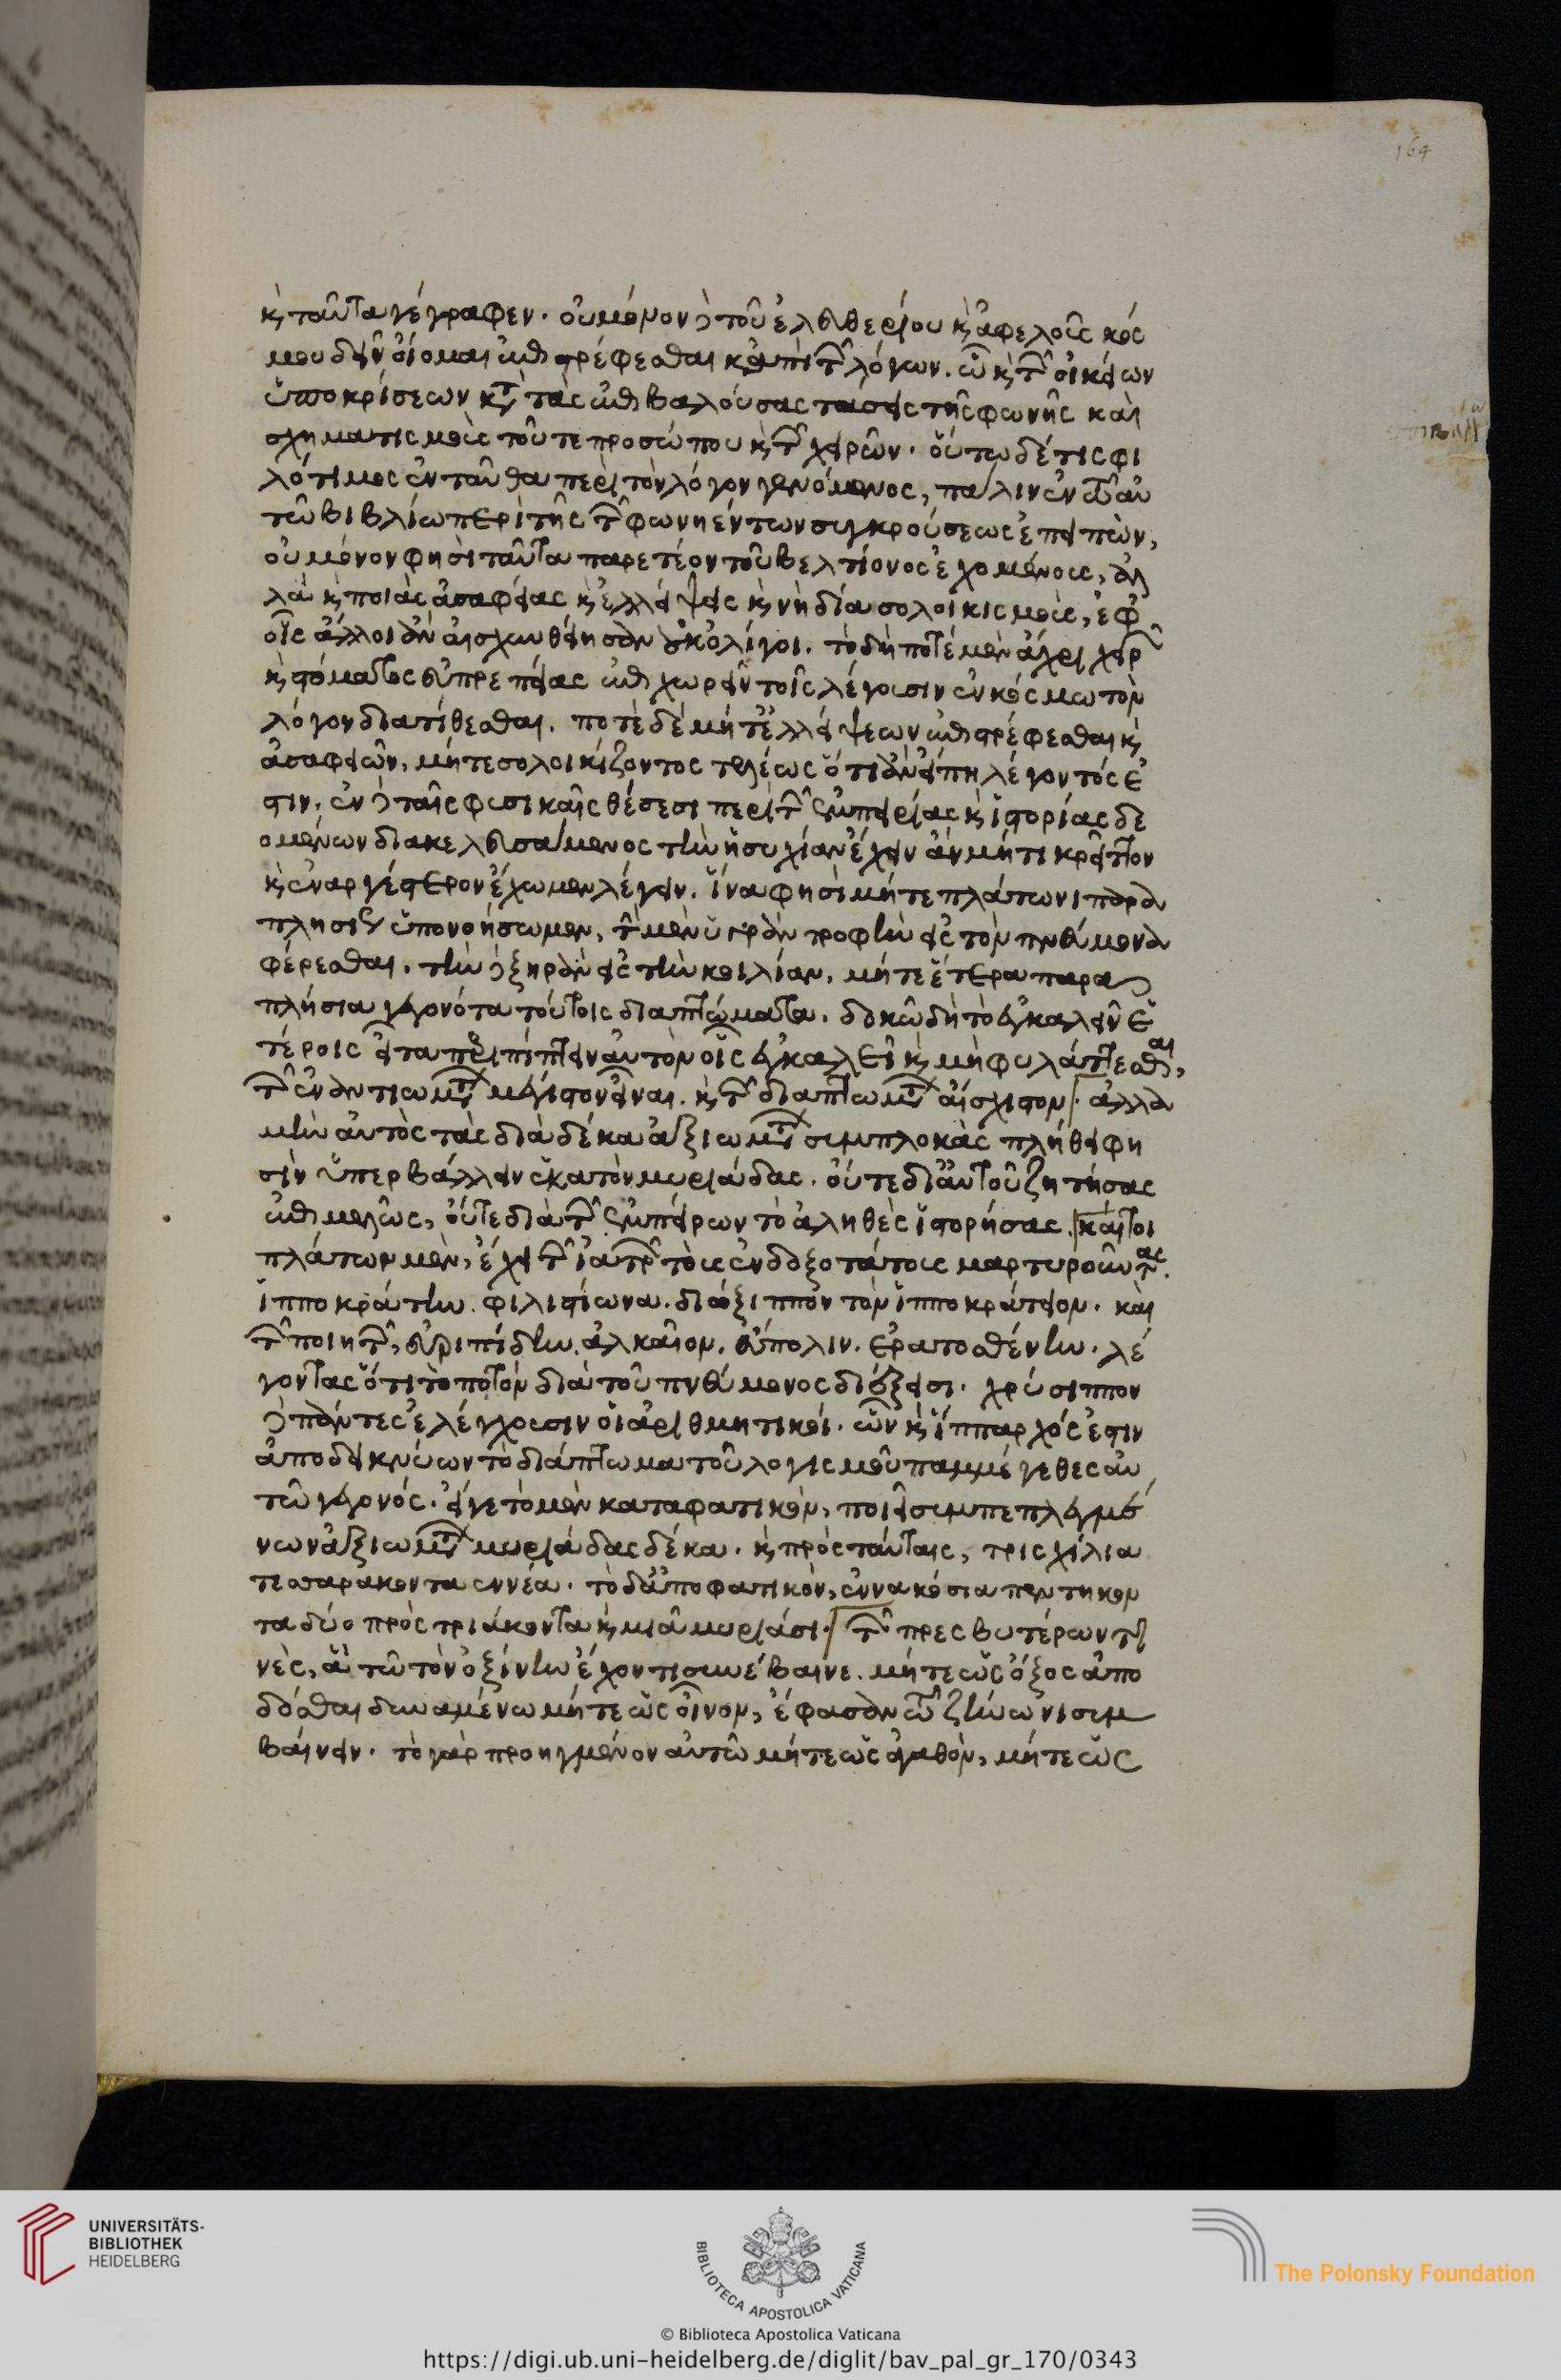 164
κ ταῦτα γέγραφεν. οὐ μόνον δὲ τοῦ ἐλευθερίου κ ἀφελοῦς κόσ
μου δεῖν οἴομαι ἐπιστρέφεσθαι κἀπὶ τῶν λόγων. ἀλλὰ κ τῶν οἰκείων
ὑποκρίσεων κατὰ τὰς ἐπιβαλούσας τάσεις τῆς φωνῆς καὶ
σχηματισμοὺς τοῦ τε προσώπου κ τῶν χειρῶν. οὕτω δέ τις φι
λότιμος ἐνταῦθα περὶ τὸν λόγον γενόμενος, πάλιν ἐν τῷ αὐ
τῷ βιβλίω περὶ τῆς τῶν φωνηέντων συγκρούσεως ἐπειπὼν,
οὐ μόνον φησὶ ταῦτα παρετέον τοῦ βελτίονος ἐχομένους, ἀλ
λὰ κ ποιὰς ἀσαφείας κ ἐλλείψεις κ νὴ δία σολοικισμοὺς, ἐφ
οἷς ἄλλοι ἂν αἰσχυνθείησαν οὐκ ὀλίγοι. τὸ δὴ ποτὲ μὲν ἄχρι χειρῶν
κ στόματος εὐπρεπείας ἐπιχωρεῖν τοῖς λέγουσιν ἐν κόσμω τὸν
λόγον διατίθεσθαι. ποτὲ δὲ μήτ ἐλλείψεων ἐπιστρέφεσθαι κ
ἀσαφειῶν, μήτε σολοικίζοντος τελέως ὅτι ἂν εἴπη λέγοντός ἐ
στιν. ἐν δὲ ταῖς φυσικαῖς θέσεσι περὶ τῶν ἐμπειρίας κ ἱστορίας δε
ομένων διακελευσάμενος τὴν ἡσυχίαν ἔχειν ἂν μή τι κρεῖττον
κ ἐναργέστερον ἔχωμεν λέγειν. ἵνα φησὶ μήτε πλάτωνι παρα
πλησίως ὑπονοήσωμεν, τὴν μὲν ὑγρὰν τροφὴν εἰς τὸν πνεύμονα
φέρεσθαι. τὴν δὲ ξηρὰν εἰς τὴν κοιλίαν, μήτε ἕτερα παρα
πλήσια γεγονότα τούτοις διαπτώματα. δοκῶ δὴ τὸ ἐγκαλεῖν ἑ
τέροις εἶτα περιπίπτειν αὐτὸν οἷς ἐγκαλεῖ κ μὴ φυλάττεσθαι,
τῶν ἐναντιωμάτων μέγιστον εἶναι. κ τῶν διαπτωμάτων αἴσχιστον. ἀλλὰ
μὴν αὐτὸς τὰς διὰ δέκα ἀξιωμάτων συμπλοκὰς πλήθει φη
σὶν ὑπερβάλλειν ἑκατὸν μυριάδας. οὔτε δι αὑτοῦ ζητήσας
ἐπιμελῶς, οὔτε διὰ τῶν ἐμπείρων τὸ ἀληθὲς ἱστορήσας. καίτοι
πλάτων μὲν, ἔχει τῶν ἰατρῶν τοὺς ἐνδοξοτάτους μαρτυροῦντας.
ἱπποκράτην. φιλιστίωνα. διώξιππον τὸν ἱπποκράτειον. καὶ
τῶν ποιητῶν, εὐριπίδην. ἀλκαῖον. εὔπολιν. ἐρατοσθένην. λέ
γοντας ὅτι τὸ ποτὸν διὰ τοῦ πνεύμονος διέξεισι. χρύσιππον
δὲ πάντες ἐλέγχουσιν οἱ ἀριθμητικοί. ὧν κ ἵππαρχός ἐστιν
ἀποδεικνύων τὸ διάπτωμα τοῦ λογισμοῦ παμμέγεθες αὐ
τῶ γεγονός. εἴγε τὸ μὲν καταφατικὸν, ποιεῖ συμπεπλεγμέ
νων ἀξιωμάτων μυριάδας δέκα. κ πρὸς ταύταις, τρισχίλια
τεσσαράκοντα ἐννέα. τὸ δ ἀποφατικὸν, ἐννακόσια πεντήκον
τα δύο πρὸς τριάκοντα κ μιᾶ μυριάσι. τῶν πρεσβυτέρων τι
νὲς, ἃ τῶ τὸν ὀξίνην ἔχοντι συνέβαινε. μήτε ὡς ὄξος ἀπο
δόσθαι δυναμένω μήτε ὡς οἶνον, ἔφασαν τῶ ζήνωνι συμ
βαίνειν. τὸ γὰρ προηγμένον αὐτῶ μήτε ὡς ἀγαθὸν, μήτε ὡς
UNIVERSITÄTS-
BIBLIOTHEK
HEIDELBERG
BIBLIOTECA APOSTOLICA VATICANA
The Polonsky Foundation
© Biblioteca Apostolica Vaticana
https://digi.ub.uni-heidelberg.de/diglit/bav_pal_gr_170/0343